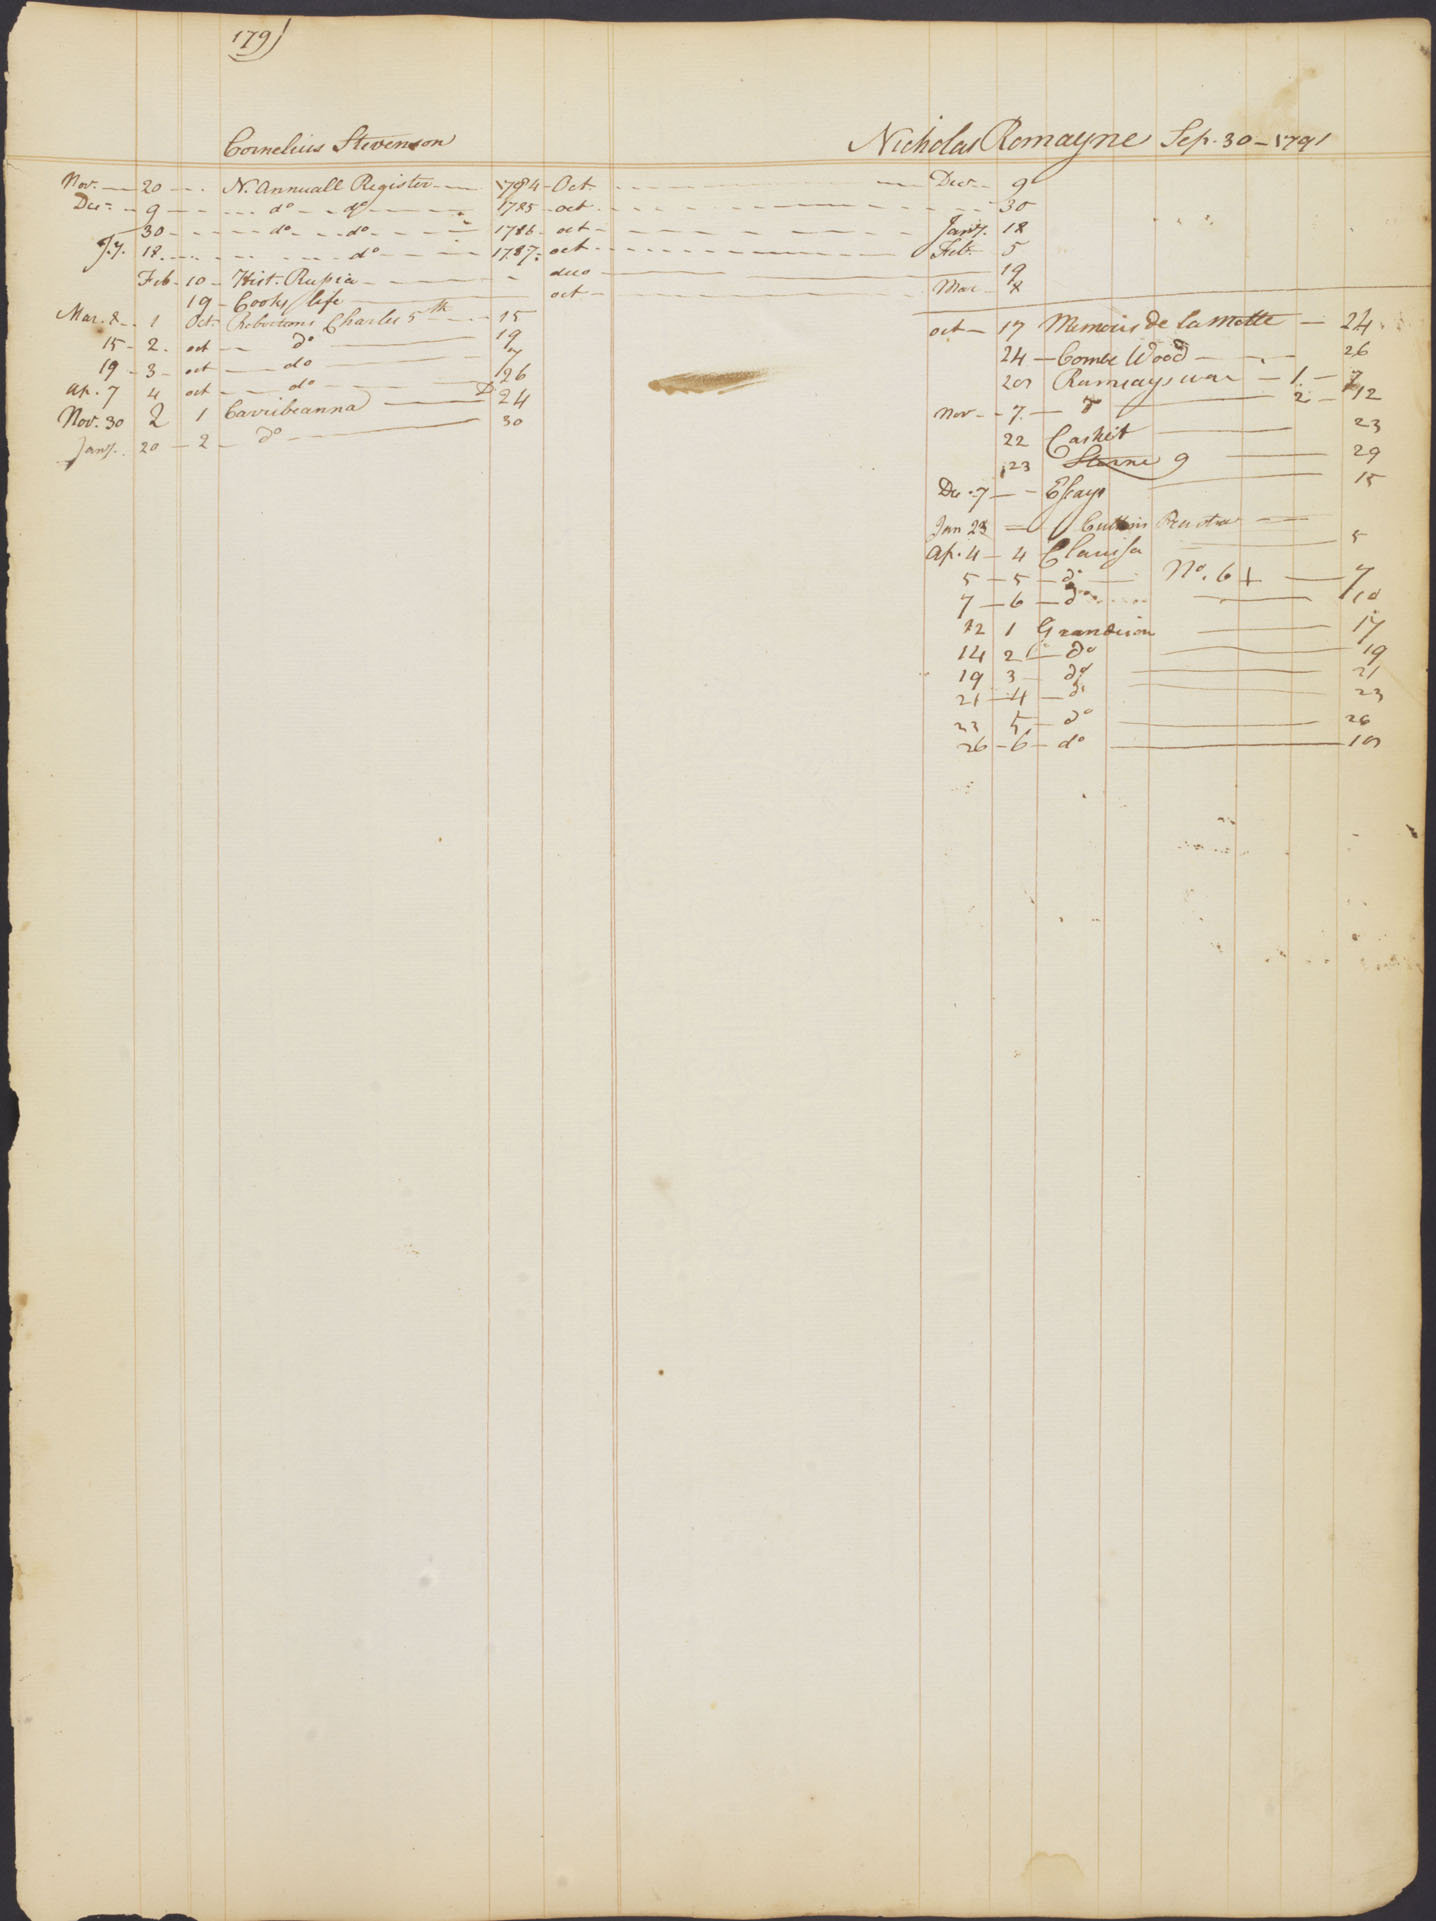 179
Cornelius Stevenson
Nov. 20 N. Annuall Register 1784 Oct. Decr. 9
Decr. 9 do do 1785 oct 30
30 do do 1786 oct Jany. 18
J.y. 18 do 1787 oct Feb. 5
Feb. 10 Hist. Rusia duo 19
19 Cooks life oct Mar 8
Mar. 8 1 Oct. Robertsons Charles 5th 15
15 2 oct do 19
19 3 oct do 7
Ap. 7 4 oct do 26
Nov. 30 2 1 Carribeanna D 24
Jany. 20 2 do 30
Nicholas Romayne Sep. 30 - 1791
oct 17 Memoirs de La Motte 24
24 Combe Wood 26
Ramsays war 1 7
Nov 7 do 2 12
22 Caskit 23
23 Sterne 9 29
De. 7 Essays 15
Jan 23
Ap. 4 4 Clarissa 5
5 5 do No. 6 + 7
7 6 do 10
12 1 Grandison 17
14 2 do 19
19 3 do 21
21 4 do 23
23 5 do 26
26 6 do